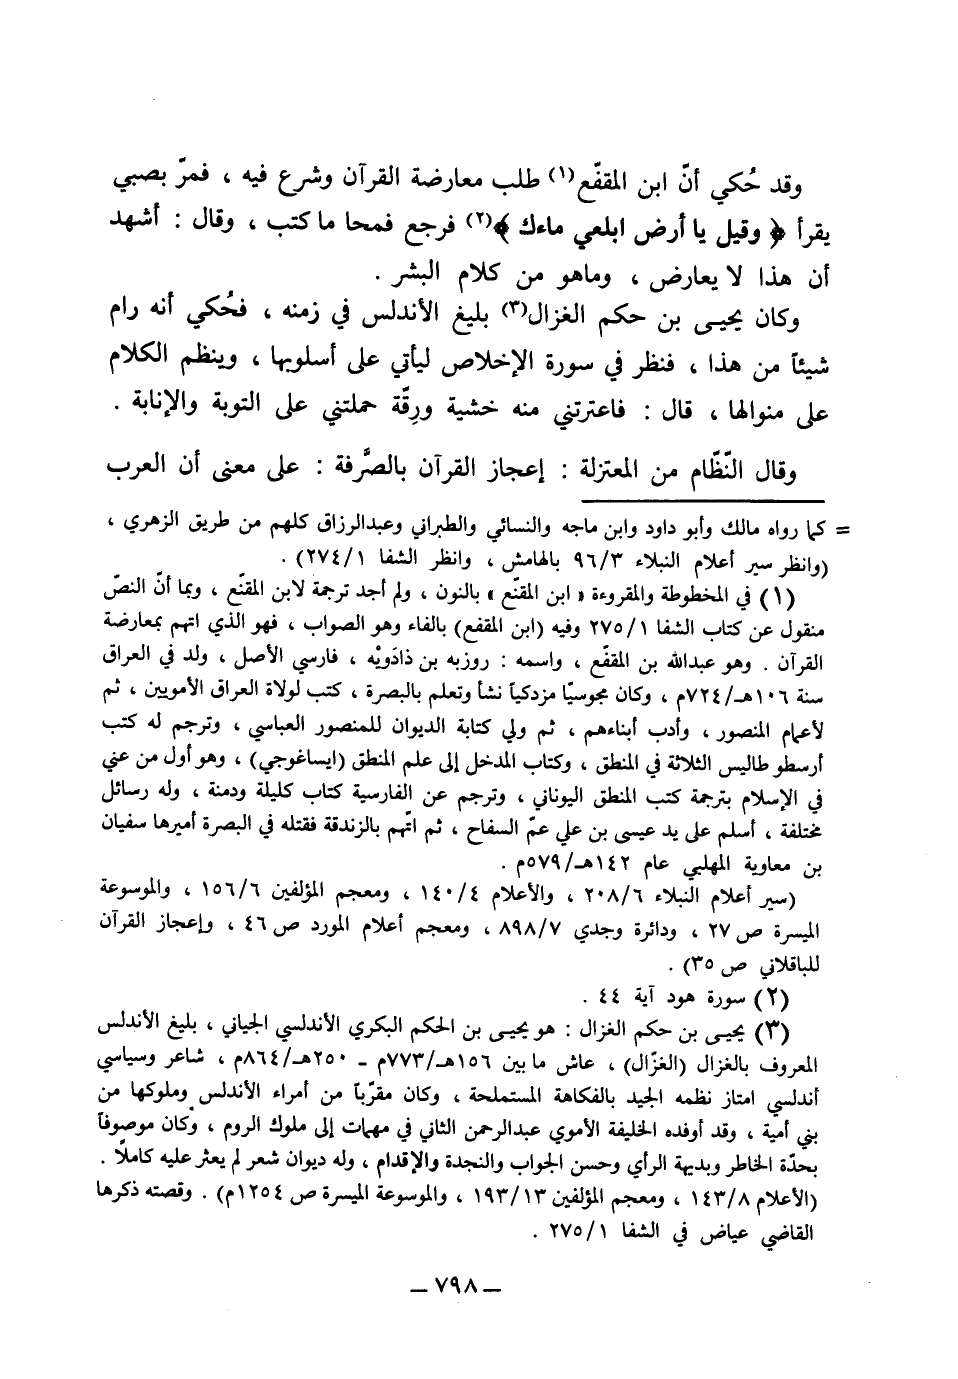 وقد حُكي أنّ ابن المقفّع(١) طلب معارضة القرآن وشرع فيه ، فمرّ بصبي
يقرأ ﴿ وقيل يا أرض ابلعي ماءك ﴾(٢) فرجع فمحا ما كتب ، وقال : أشهد
أن هذا لا يعارض ، وماهو من كلام البشر .
وكان يحيى بن حكم الغزال(٣) بليغ الأندلس في زمنه ، فحُكي أنه رام
شيئاً من هذا ، فنظر في سورة الإخلاص ليأتي على أسلوبها ، وينظم الكلام
على منوالها ، قال : فاعترتني منه خشية ورِقّة حملتني على التوبة والإنابة .
وقال النّظّام من المعتزلة : إعجاز القرآن بالصَّرفة : على معنى أن العرب
= كما رواه مالك وأبو داود وابن ماجه والنسائي والطبراني وعبدالرزاق كلهم من طريق الزهري ،
(وانظر سير أعلام النبلاء ٩٦/٣ بالهامش ، وانظر الشفا ٢٧٤/١) .
(١) في المخطوطة والمقروءة « ابن المقنّع » بالنون ، ولم أجد ترجمة لابن المقنّع ، وبما أنّ النصّ
منقول عن كتاب الشفا ٢٧٥/١ وفيه (ابن المقفع) بالفاء وهو الصواب ، فهو الذي اتهم بمعارضة
القرآن . وهو عبدالله بن المقفّع ، واسمه : روزبه بن ذادَويْه ، فارسي الأصل ، ولد في العراق
سنة ١٠٦هـ/٧٢٤م ، وكان مجوسيّا مزدكياً نشأ وتعلم بالبصرة ، كتب لولاة العراق الأمويين ، ثم
لأعمام المنصور ، وأدب أبناءهم ، ثم ولي كتابة الديوان للمنصور العباسي ، وترجم له كتب
أرسطو طاليس الثلاثة في المنطق ، وكتاب المدخل إلى علم المنطق (ايساغوجي) ، وهو أول من عني
في الإسلام بترجمة كتب المنطق اليوناني ، وترجم عن الفارسية كتاب كليلة ودمنة ، وله رسائل
مختلفة ، أسلم على يد عيسى بن علي عمّ السفاح ، ثم اتّهم بالزندقة فقتله في البصرة أميرها سفيان
بن معاوية المهلبي عام ١٤٢هـ/٥٧٩م .
(سير أعلام النبلاء ٢٠٨/٦ ، والأعلام ١٤٠/٤ ، ومعجم المؤلفين ١٥٦/٦ ، والموسوعة
الميسرة ص٢٧ ، ودائرة وجدي ٨٩٨/٧ ، ومعجم أعلام المورد ص٤٦ ، وإعجاز القرآن
للباقلاني ص٣٥) .
(٢) سورة هود آية ٤٤ .
(٣) يحيى بن حكم الغزال : هو يحيى بن الحكم البكري الأندلسي الجياني ، بليغ الأندلس
المعروف بالغزال (الغزّال) ، عاش ما بين ١٥٦هـ/٧٧٣م ـ ٢٥٠هـ/٨٦٤م ، شاعر وسياسي
أندلسي امتاز نظمه الجيد بالفكاهة المستملحة ، وكان مقرّباً من أمراء الأندلس وملوكها من
بني أمية ، وقد أوفده الخليفة الأموي عبدالرحمن الثاني في مهمات إلى ملوك الروم ، وكان موصوفاً
بحدّة الخاطر وبديهة الرأي وحسن الجواب والنجدة والإقدام ، وله ديوان شعر لم يعثر عليه كاملاً .
(الأعلام ١٤٣/٨ ، ومعجم المؤلفين ١٩٣/١٣ ، والموسوعة الميسرة ص١٢٥٤م) . وقصته ذكرها
القاضي عياض في الشفا ٢٧٥/١ .
ـ ٧٩٨ ـ